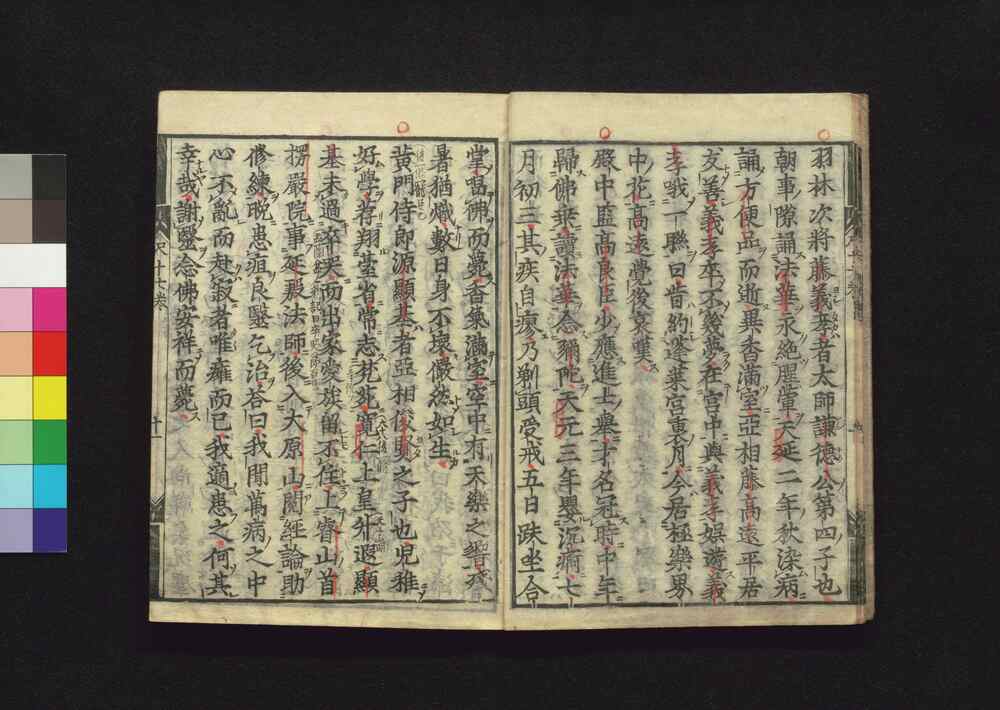 羽林次將藤義孝者太師謙德公第四子也
朝事隙誦法華永絕腥葷天延二年秋染病
誦方便品而逝異香滿室亞相藤高遠平居
友善義孝卒不幾夢在宮中與義孝娯遊義
孝哦一聯曰昔約蓬萊宮裏月今居極樂界
中花高遠覺後哀嘆
殿中監高良臣少應進士擧才名冠時中年
歸佛乘讀法華念彌陀天元三年嬰沉痾七
月初三其疾自瘳乃剃頭受戒五日趺坐合
掌唱佛而薨香氣滿室空中有天樂之響殘
暑猶熾數日身不壞儼然如生
黃門侍郎源顯基者亞相俊賢之子也兒稚
好學荐翔臺省常志菀寬仁上皇升遐顯
基未過卒哭而出家愛族留不住上睿山首
楞嚴院事延殷法師後入大原山閱經論助
修練晩患疽良醫乞治答曰我聞萬病之中
心不亂而赴寂者唯癰而已我適患之何其
幸哉謝醫念佛安祥而薨
尺十七卷
十一